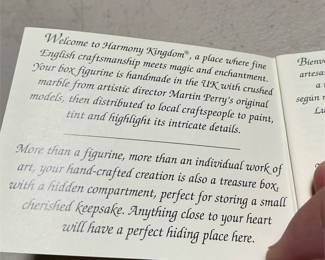 Welcome to Harmony Kingdom®, a place where fine
English craftsmanship meets magic and enchantment.
Your box figurine is handmade in the UK with crushed
marble from artistic director Martin Perry's original
models, then distributed to local craftspeople to paint,
tint and highlight its intricate details.
More than a figurine, more than an individual work of
art, your hand-crafted creation is also a treasure box,
with a hidden compartment, perfect for storing a small
cherished keepsake. Anything close to your heart
will have a perfect hiding place here.
según